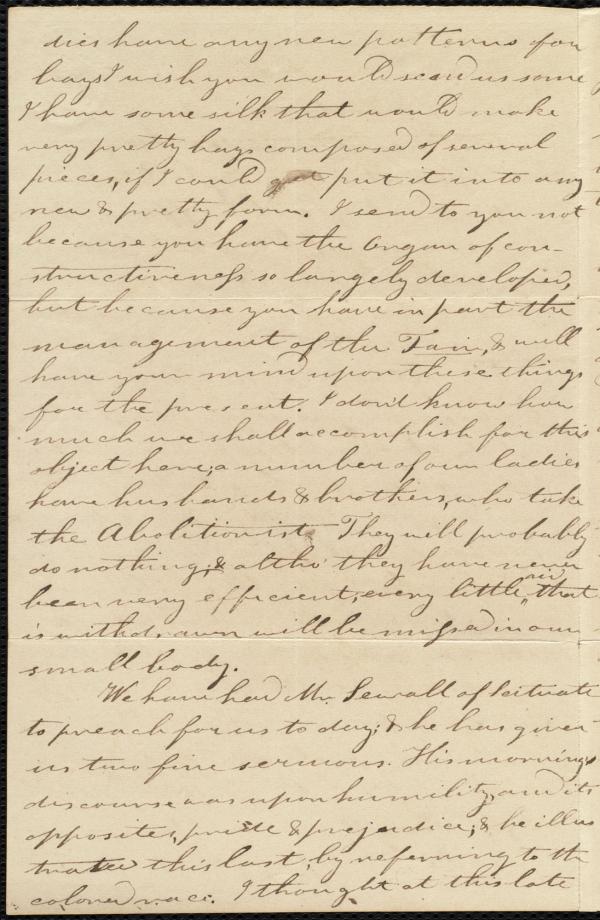 dies have any new patterns for
bags I wish you would send us some
I have some silk that would make
very pretty bags composed of several
pieces, if I could get put it into any
new & pretty form. I send to you not
because you have the Organ of con-
structiveness so largely developed,
but because you have in part the
management of the Fair, & will
have your mind upon these things
for the present. I don't know how
much we shall accomplish for this
object here; a number of our ladies
have husbands & brothers, who take
the Abolitionist. They will probably
do nothing; & altho' they have never
been very efficient, every little aid that
is withdrawn will be missed in our
small body.
We have had Mr. Sewall of Scituate
to preach for us to day; & he has given
us two fine sermons. His morning's
discourse was upon humility, and its
opposites, pride & prejudice; & he illus
trated this last, by referring to the
colored race. I thought at this late